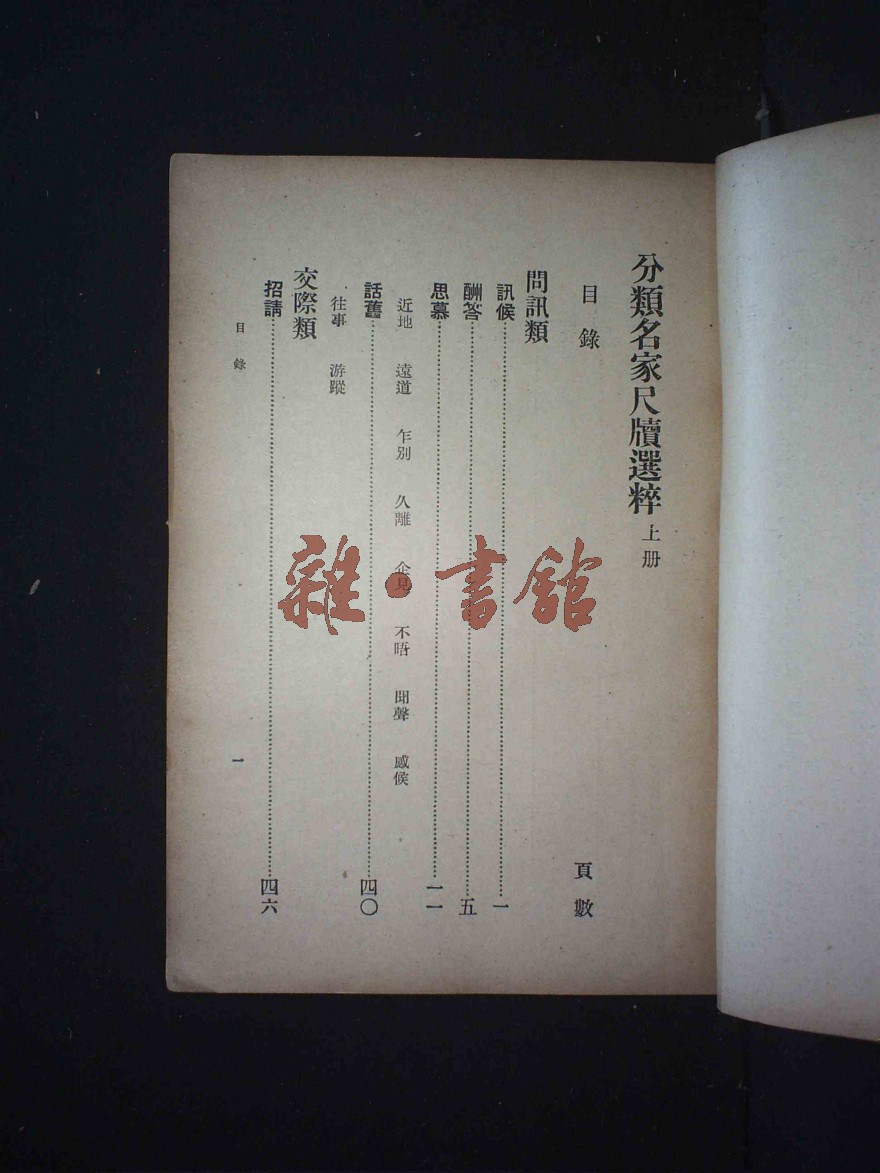 分類名家尺牘選粹 上册
目錄 頁數
問訊類
訊候 一
酬答 五
思慕 一一
近地 遠道 乍別 久離 企見 不晤 聞聲 感候
話舊 四〇
往事 游蹤
交際類
招請 四六
目錄 一
雜·書館